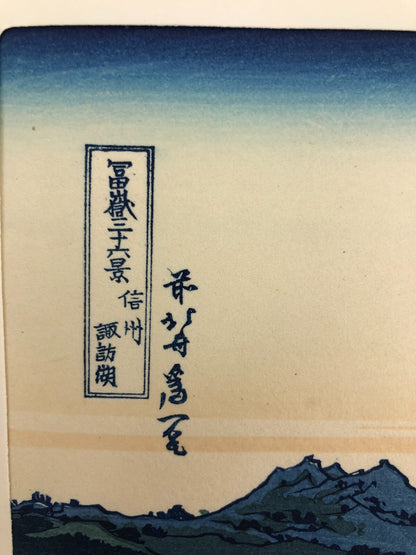 冨嶽三十六景
信州
諏訪湖
前北斎為一筆